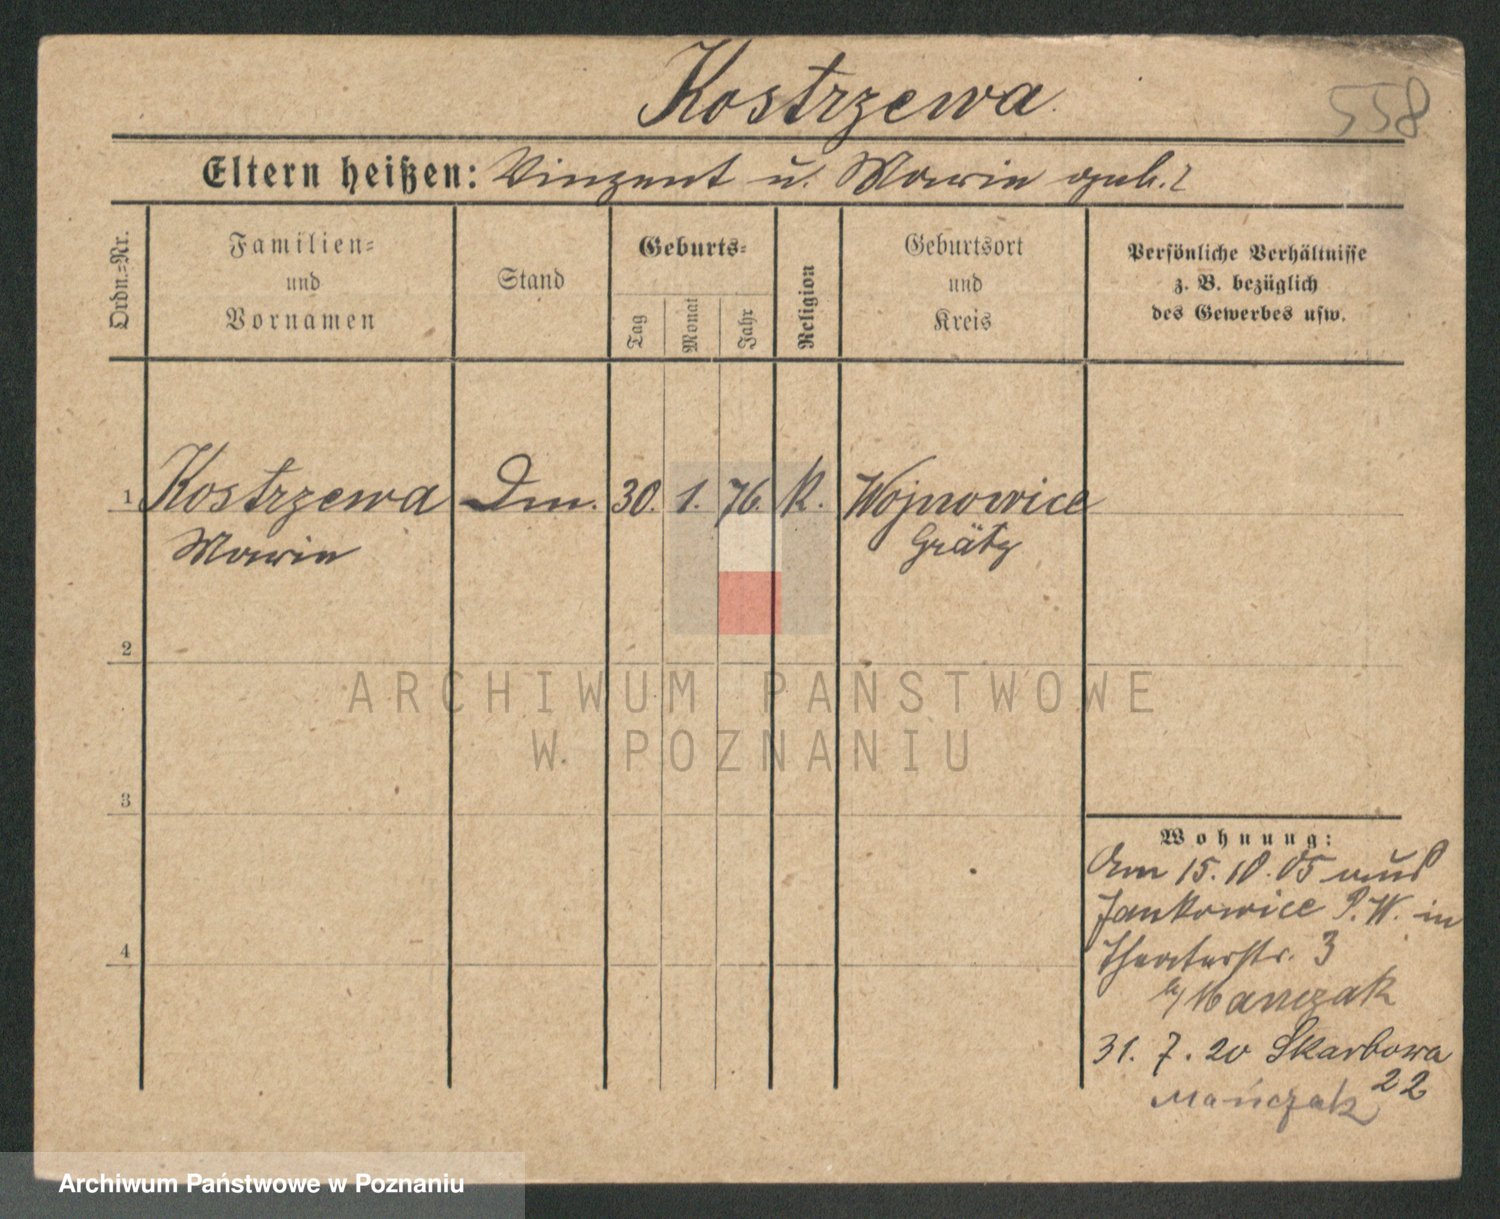 Kostrzewa
558
Eltern heißen: Vinzent u. Marie geb. ?
Ordn.-Nr.
Familien-
und
Vornamen
Stand
Geburts-
Tag
Monat
Jahr
Religion
Geburtsort
und
Kreis
Persönliche Verhältnisse
z. B. bezüglich
des Gewerbes usw.
1 Kostrzewa Dm. 30. 1. 76. k. Wojnowice
Marie Grätz
2
ARCHIWUM PAŃSTWOWE
W POZNANIU
3
Wohnung:
Am 15. 10. 05 aus
Jankowice P. W. in
Theaterstr. 3
b/ Manczak
4
31. 7. 20 Skarbowa
22
Mańczak
Archiwum Państwowe w Poznaniu